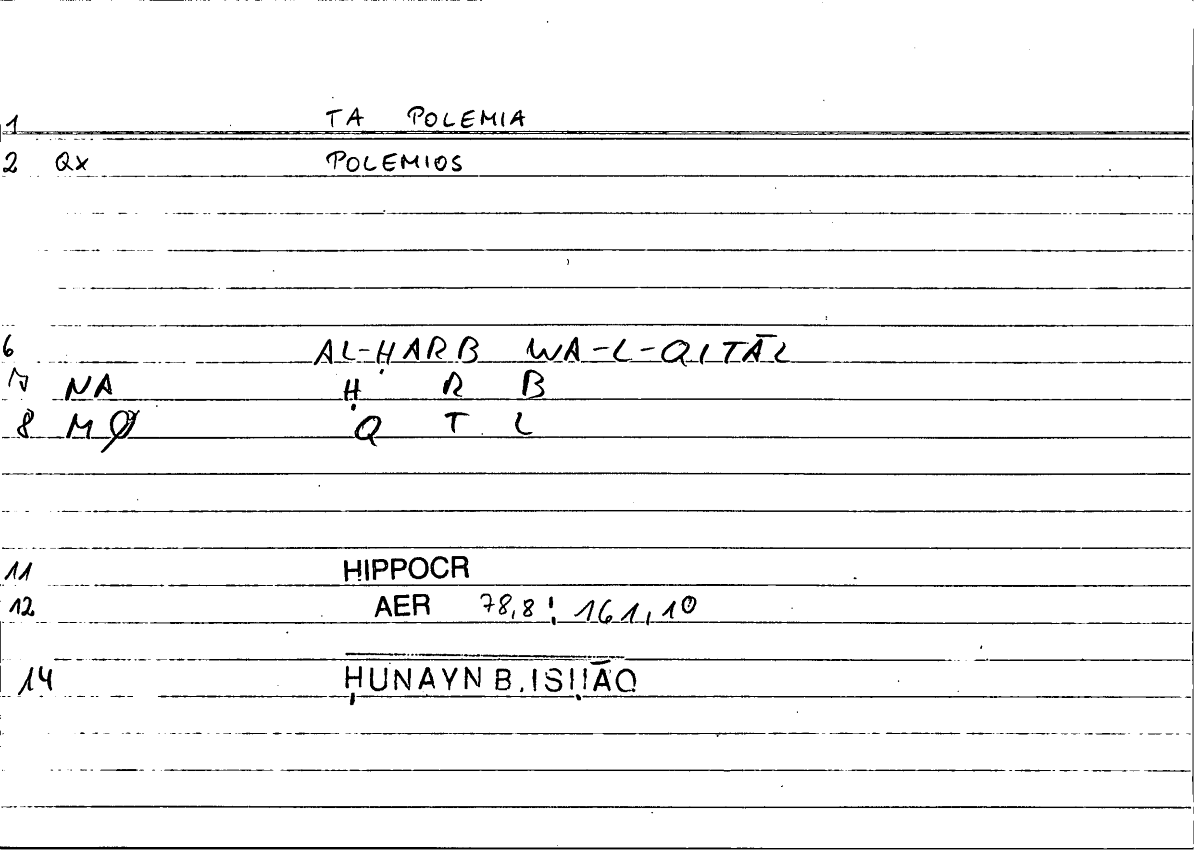 1 TA POLEMIA
2 Qx POLEMIOS
6 AL-ḤARB WA-L-QITĀL
7 NA Ḥ R B
8 MØ Q T L
11 HIPPOCR
12 AER 78,8 ; 161,10
14 ḤUNAYN B. ISḤĀQ